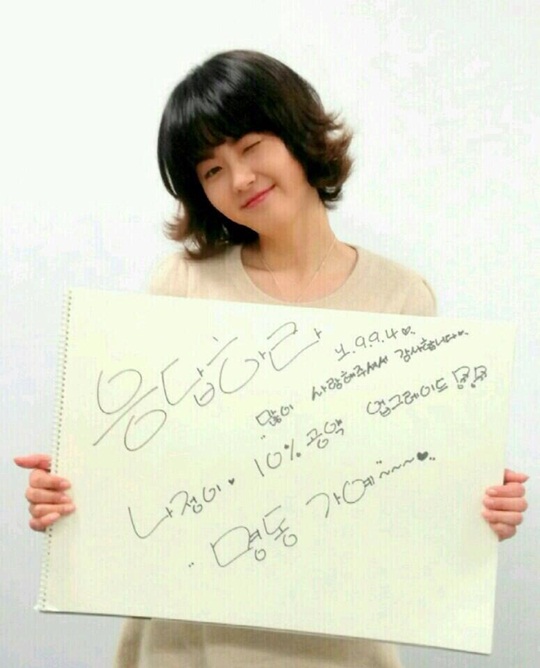 응답하라
1.9.9.4♡.
많이 사랑해주셔서 감사합니다♡.
나정이♥ 10% 공약 업그레이드
명동 가예~~~~♥..